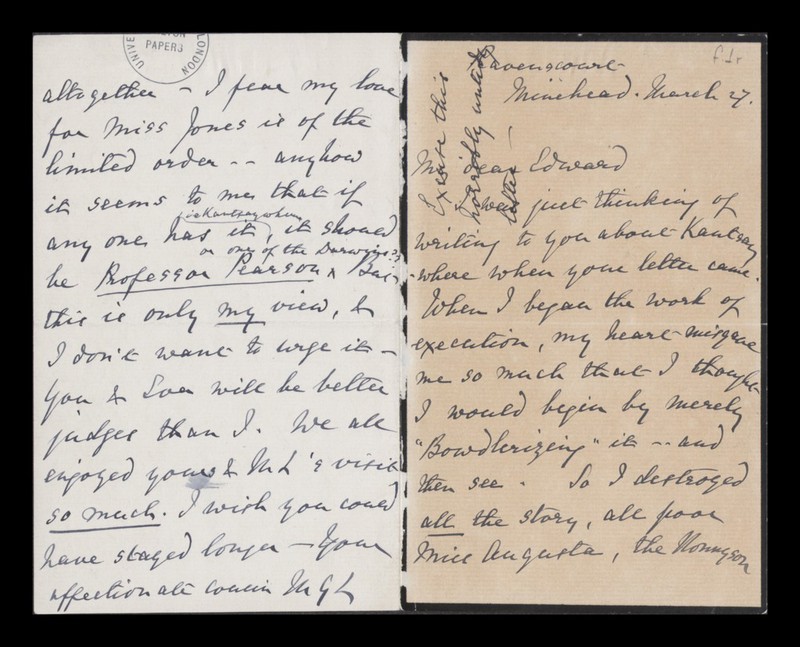 UNIVE
LONDON
PAPERS
altogether – I fear my love
for Miss Jones is of the
limited order -- anyhow
it seems to me that if
ie Kantsaywhere
any one has it, it should
or one of the Darwins??
be Professor Pearson. But
this is only my view, &
I don't want to urge it –
You & Eva will be better
judges than I. We all
enjoyed yours & M L's visit
so much. I wish you could
have stayed longer – Your
affectionate cousin M G L
f 1r
avenscourt
Minehead. March 27.
Excuse this
horribly untidy
letter!
My dear Edward
I was just thinking of
writing to you about Kantsay
-where when your letter came.
When I began the work of
execution, my heart misgave
me so much that I thought
I would begin by merely
"Bowdlerizeing" it -- and
then see. So I destroyed
all the story, all poor
Miss Augusta, the Nonnyson